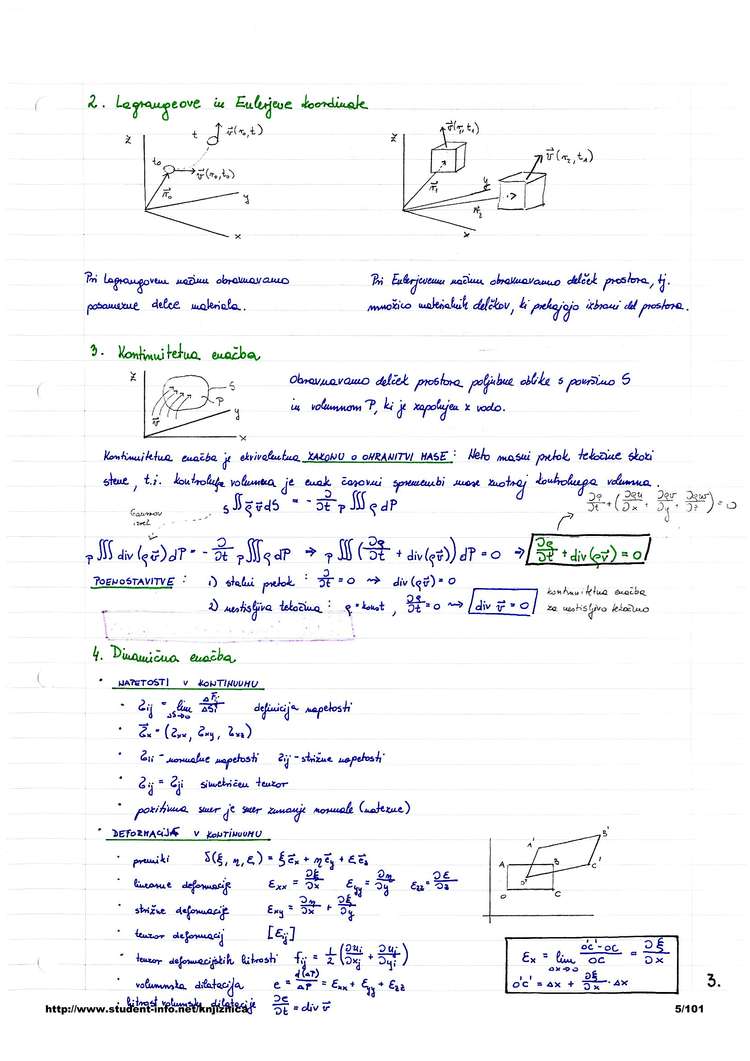 2. Lagrangeove in Eulerjeve koordinate
z t v⃗(r₀,t) t₀ v⃗(r₀,t₀) r⃗₀ y x
z v⃗(r₁,t₁) r⃗₁ y v⃗(r₂,t₁) r⃗₂ x
Pri Lagrangovem načinu obravnavamo
posamezne delce materiala.
Pri Eulerjevemu načinu obravnavamo delček prostora, tj.
množico materialnih delčkov, ki prehajajo izbrani del prostora.
3. Kontinuitetna enačba
z S P y v⃗ x
Obravnavamo delček prostora poljubne oblike s površino S
in volumnom P, ki je zapolnjen z vodo.
Kontinuitetna enačba je ekvivalentna ZAKONU O OHRANITVI MASE: Neto masni pretok tekočine skozi
stene, t.i. kontrolnega volumna je enak časovni spremembi mase znotraj kontrolnega volumna.
S∬ρv⃗dS = -∂/∂t P∭ρdP
∂ρ/∂t + (∂ρu/∂x + ∂ρv/∂y + ∂ρw/∂z) = 0
Gaussov izrek
P∭div(ρv⃗)dP = -∂/∂t P∭ρdP → P∭(∂ρ/∂t + div(ρv⃗))dP = 0 → ∂ρ/∂t + div(ρv⃗) = 0
POENOSTAVITVE: 1) stalni pretok: ∂/∂t = 0 → div(ρv⃗) = 0
2) nestisljiva tekočina: ρ = konst, ∂ρ/∂t = 0 → div v⃗ = 0
kontinuitetna enačba
za nestisljivo tekočino
4. Dinamična enačba
• NAPETOSTI V KONTINUUMU
• τij = lim ΔS→0 ΔFj/ΔSi definicija napetosti
• τ⃗x = (τxx, τxy, τxz)
• τii - normalne napetosti τij - strižne napetosti
• τij = τji simetričen tenzor
• pozitivna smer je smer zunanje normale (natezne)
• DEFORMACIJA V KONTINUUMU
• premiki δ(ξ, η, ε) = ξe⃗x + ηe⃗y + εe⃗z
• linearne deformacije εxx = ∂ξ/∂x εyy = ∂η/∂y εzz = ∂ε/∂z
• strižne deformacije εxy = ∂η/∂x + ∂ξ/∂y
• tenzor deformacij [εij]
• tenzor deformacijskih hitrosti fij = 1/2 (∂ui/∂xj + ∂uj/∂yi)
• volumska dilatacija e = d(ΔP)/ΔP = εxx + εyy + εzz
• hitrost volumske dilatacije ∂e/∂t = div v⃗
A B O C A' B' O' C'
εx = lim Δx→0 O'C'-OC/OC = ∂ξ/∂x
O'C' = Δx + ∂ξ/∂x · Δx
3.
http://www.student-info.net/knjiznica
5/101